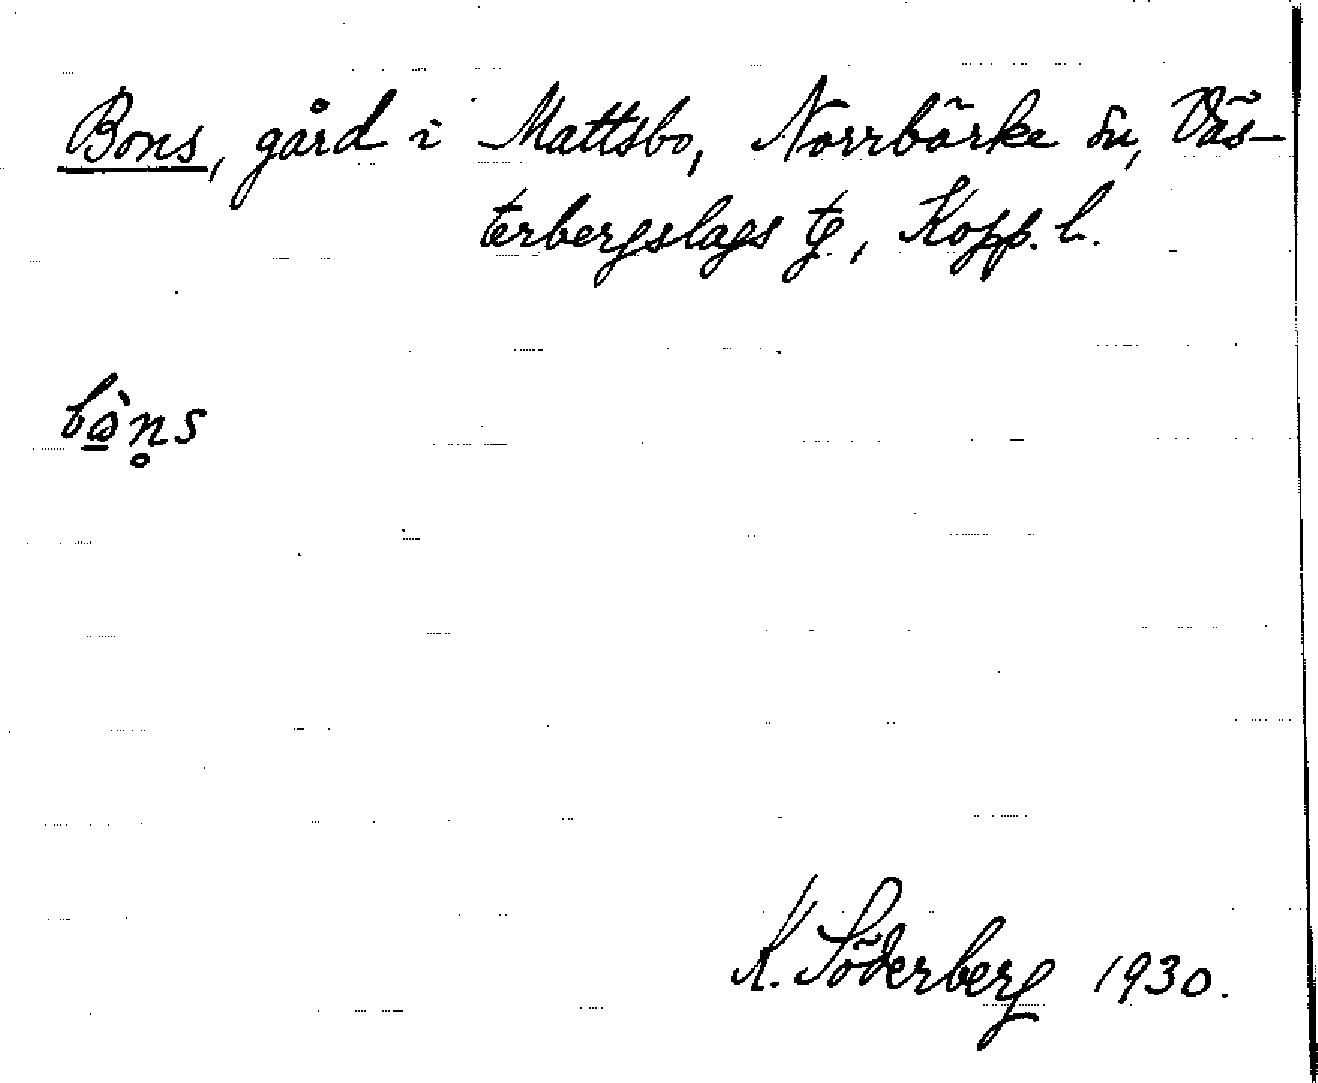 Bons, gård i Mattsbo, Norrbärke sn, Väs-
terbergslags tg, Kopp. l.
bò̲n̥s
K. Söderberg 1930.